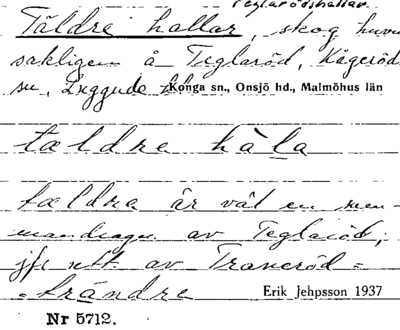 Teglarödshallar
Täldre hallar, skog huvud
sakligen å Teglaröd, Kågeröds
sn, Luggude hd. Konga sn., Onsjö hd., Malmöhus län
tældre hàla
tældre är väl en sam-
mandragn. av Teglaröd;
jfr utt. av Traneröd =
= trændre Erik Jehpsson 1937
Nr 5712.